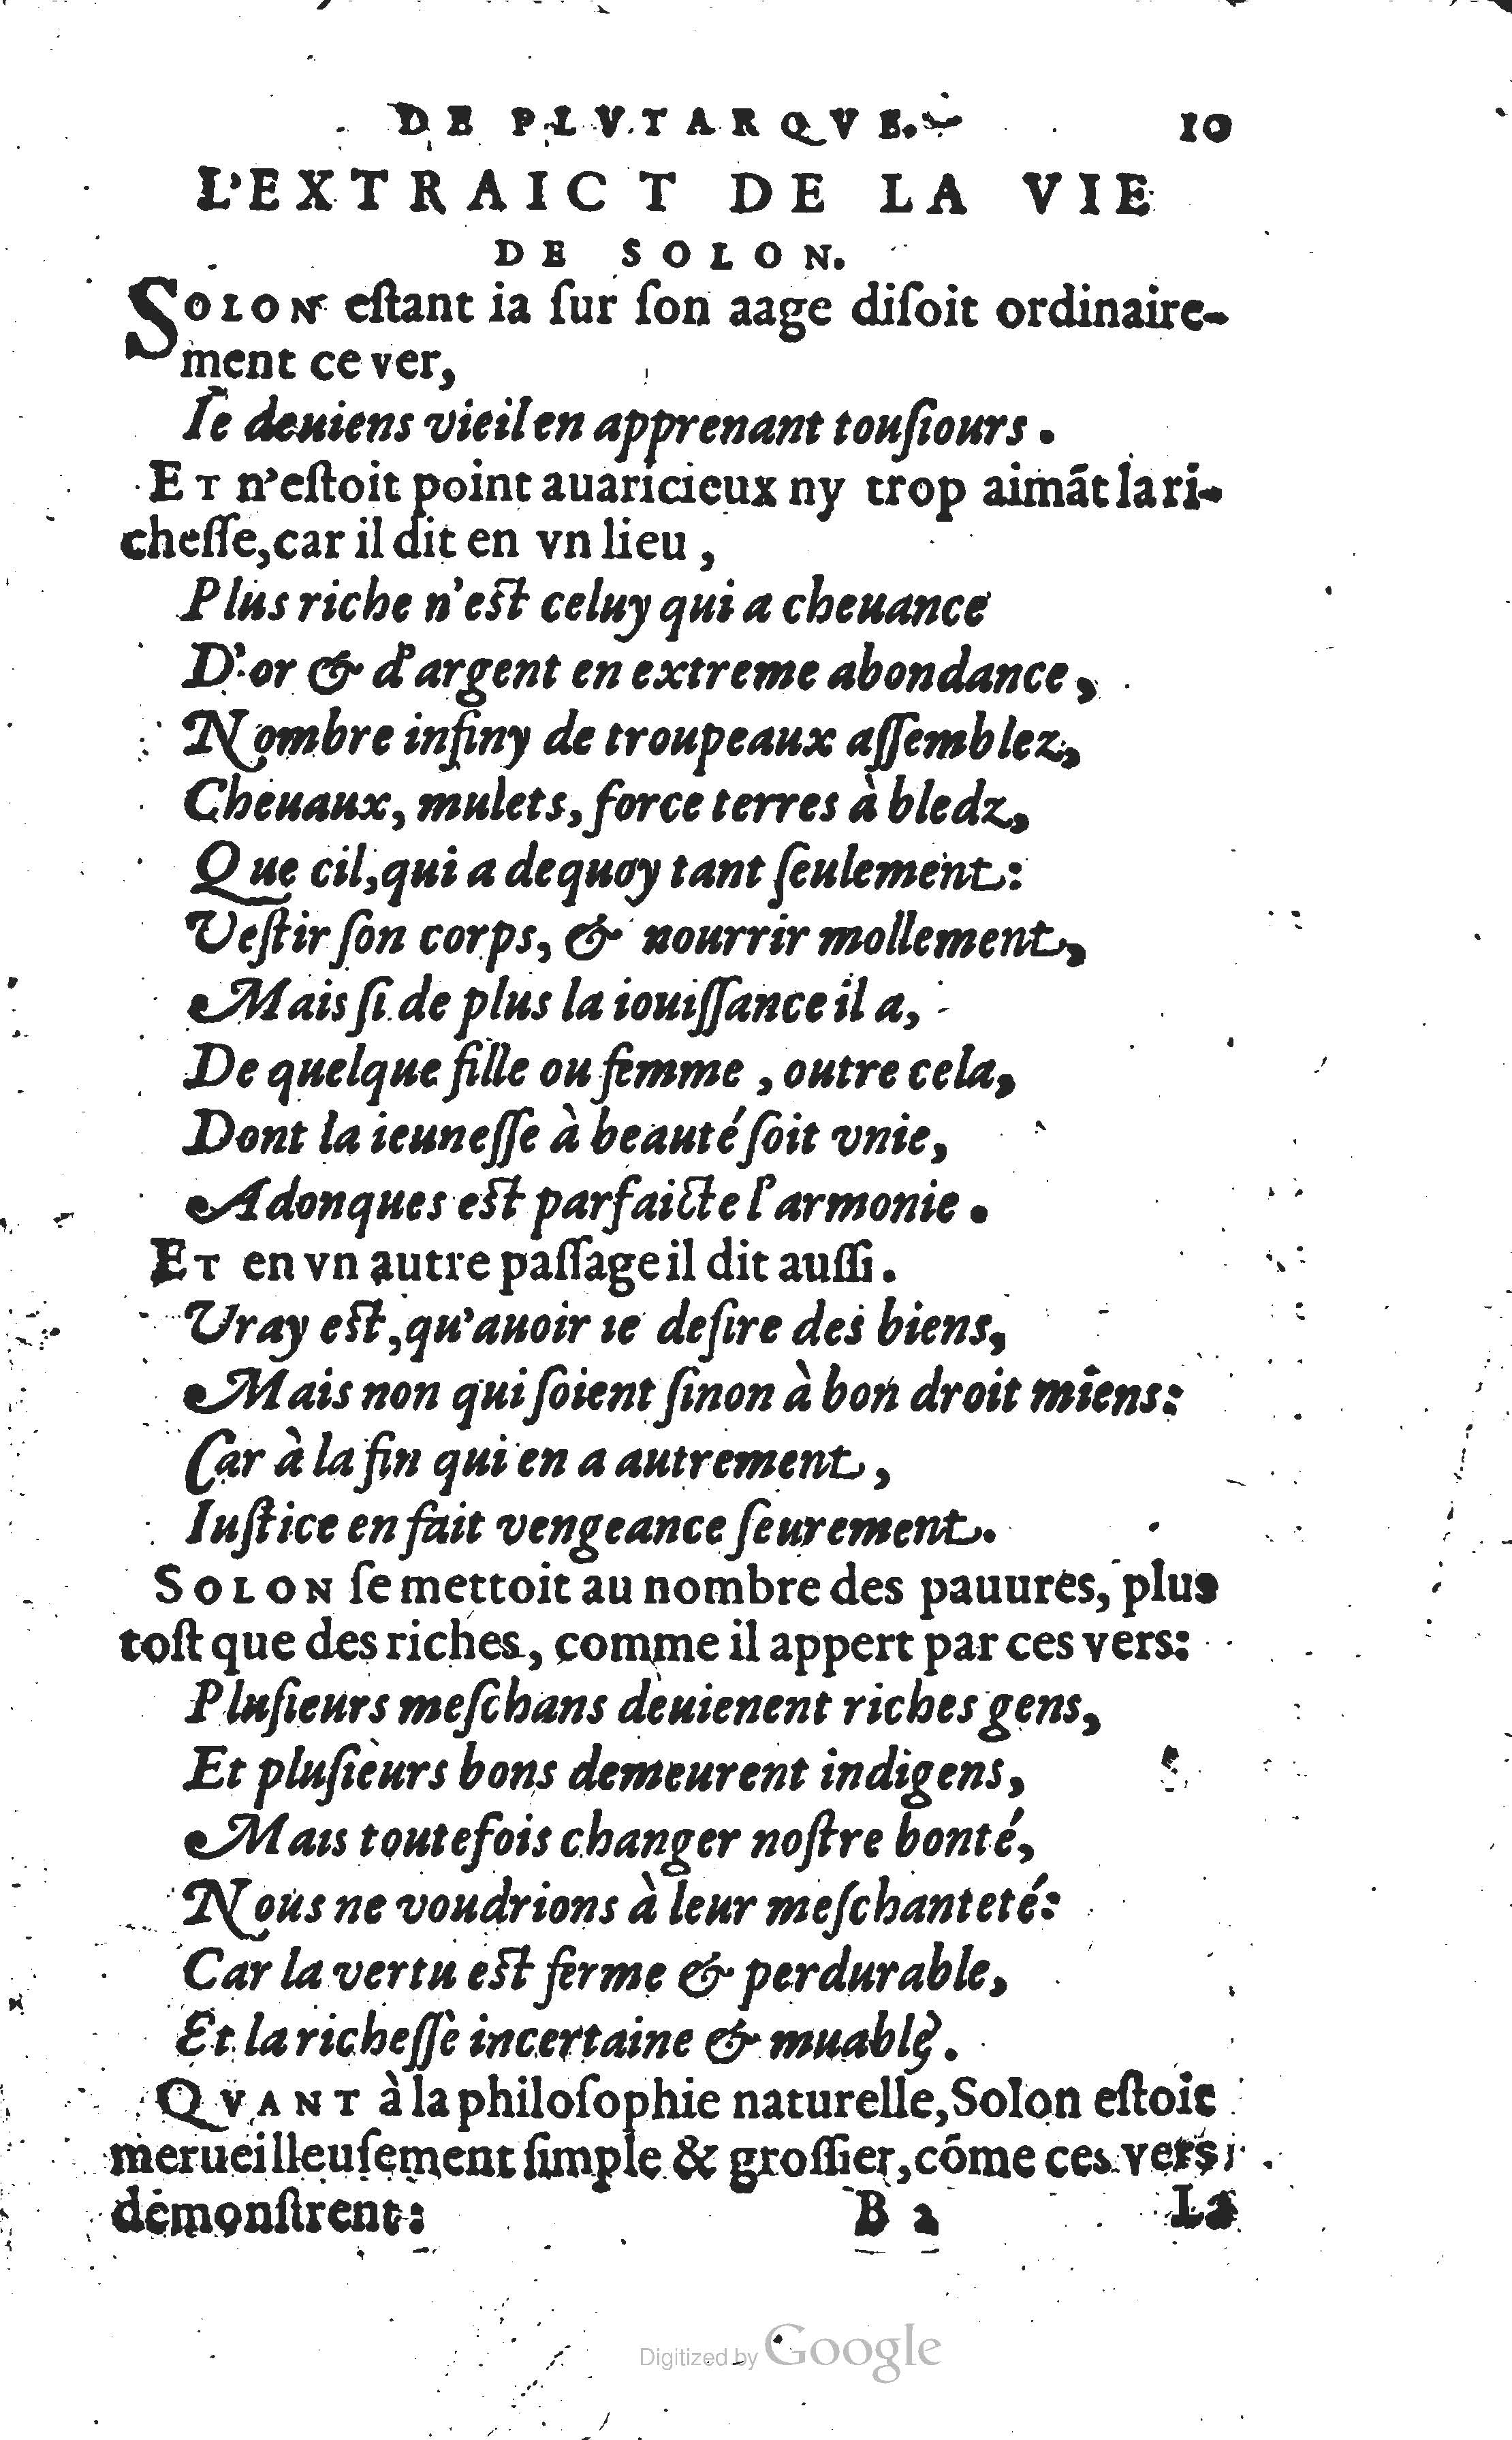 DE PLVTARQVE. 10
L'EXTRAICT DE LA VIE
DE SOLON.
SOLON eſtant ia ſur ſon aage diſoit ordinaire-
ment ce ver,
Ie deuiens vieil en apprenant touſiours.
ET n'eſtoit point auaricieux ny trop aimãt la ri-
cheſſe, car il dit en vn lieu,
Plus riche n'eſt celuy qui a cheuance
D'or & d'argent en extreme abondance,
Nombre infiny de troupeaux aſſemblez,
Cheuaux, mulets, force terres à bledz,
Que cil, qui a dequoy tant ſeulement:
Veſtir ſon corps, & nourrir mollement,
Mais ſi de plus la iouiſſance il a,
De quelque fille ou femme, outre cela,
Dont la ieuneſſe à beauté ſoit vnie,
Adonques eſt parfaicte l'armonie.
ET en vn autre paſſage il dit auſſi.
Vray eſt, qu'auoir ie deſire des biens,
Mais non qui ſoient ſinon à bon droit miens:
Car à la fin qui en a autrement,
Iuſtice en fait vengeance ſeurement.
SOLON ſe mettoit au nombre des pauures, plus
toſt que des riches, comme il appert par ces vers:
Pluſieurs meſchans deuienent riches gens,
Et pluſieurs bons demeurent indigens,
Mais toutefois changer noſtre bonté,
Nous ne voudrions à leur meſchanteté:
Car la vertu eſt ferme & perdurable,
Et la richeſſe incertaine & muable.
QVANT à la philoſophie naturelle, Solon eſtoit
merueilleuſement ſimple & groſſier, cõme ces vers
demonſtrent: B 2 La
Digitized by Google